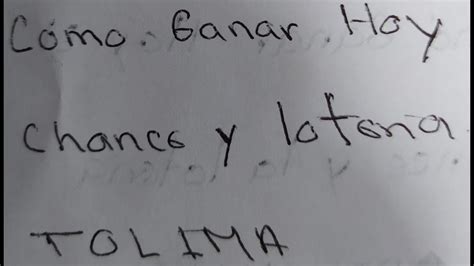 Como. Ganar. Hoy
chance y loteria
TOLIMA